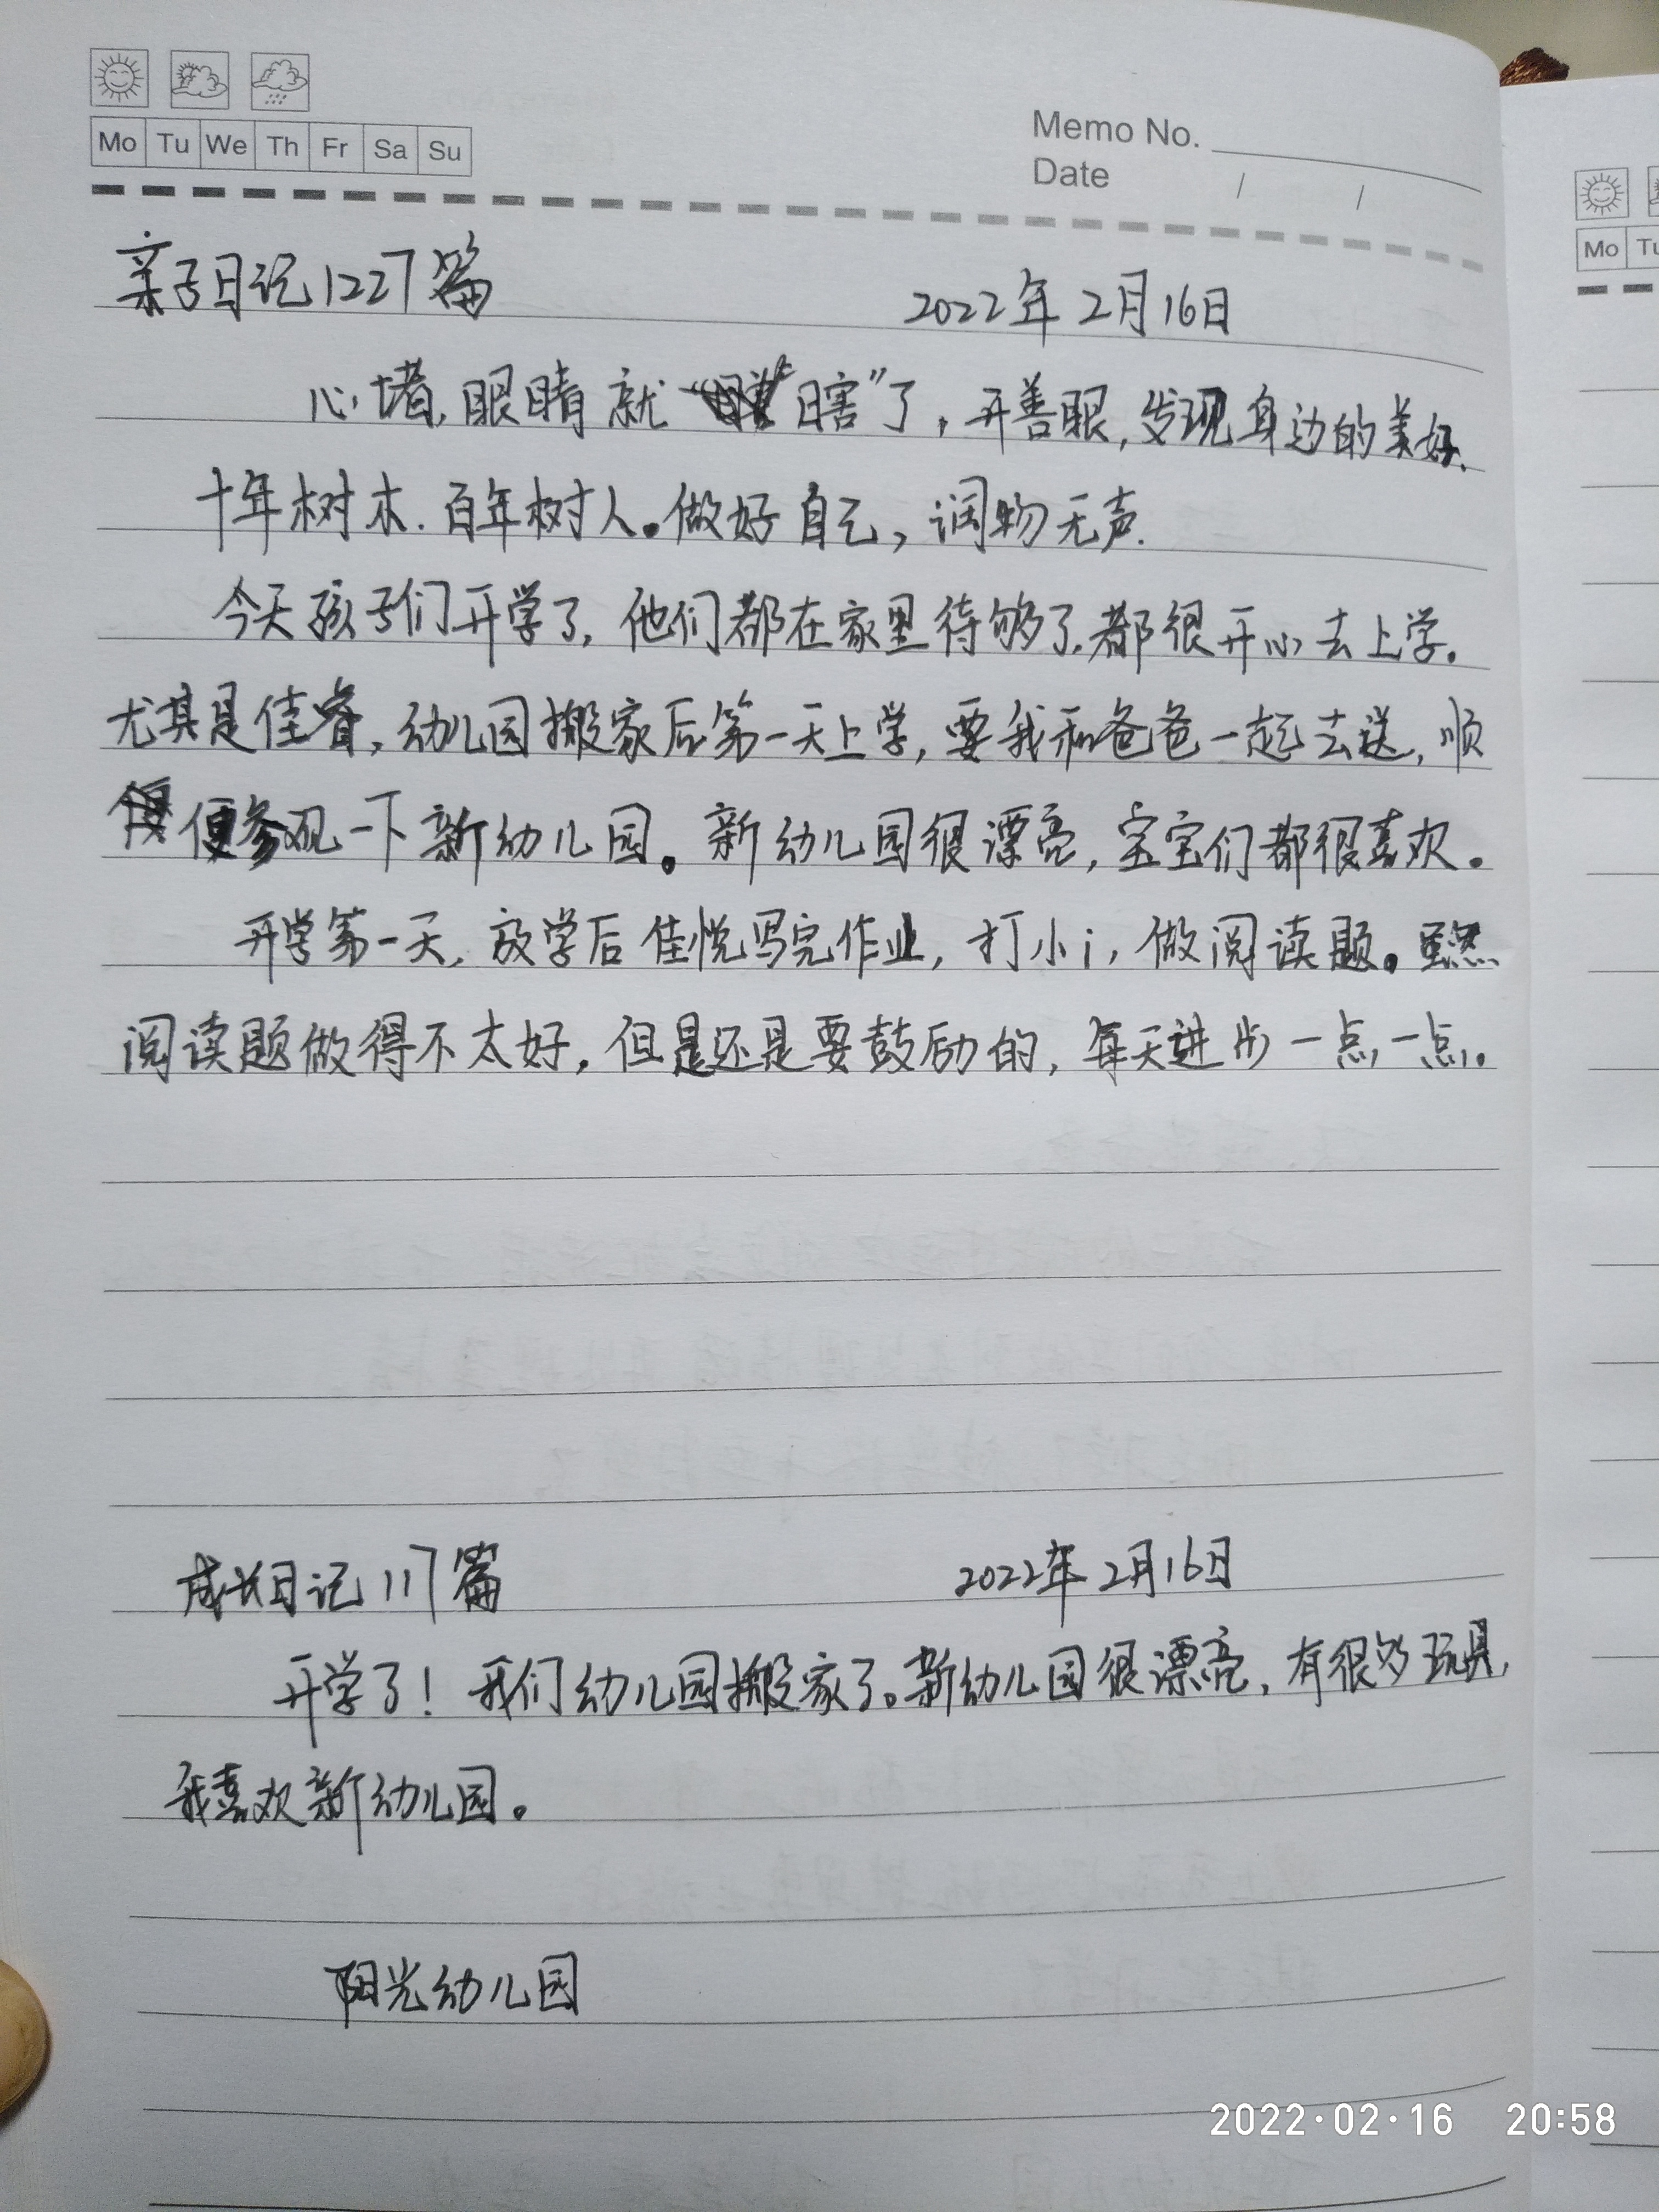 Mo Tu We Th Fr Sa Su
Memo No.
Date / /
Mo Tu
亲子日记1227篇 2022年2月16日
心堵,眼睛就“瞎”了,开善眼,发现身边的美好.
十年树木.百年树人。做好自己,润物无声.
今天孩子们开学了,他们都在家里待够了,都很开心去上学。
尤其是佳睿,幼儿园搬家后第一天上学,要我和爸爸一起去送,顺
便参观一下新幼儿园。新幼儿园很漂亮,宝宝们都很喜欢。
开学第一天,放学后佳悦写完作业,打小i,做阅读题。虽然
阅读题做得不太好,但是还是要鼓励的,每天进步一点,一点。
成长日记117篇 2022年2月16日
开学了!我们幼儿园搬家了。新幼儿园很漂亮,有很多玩具,
我喜欢新幼儿园。
阳光幼儿园
2022·02·16 20:58